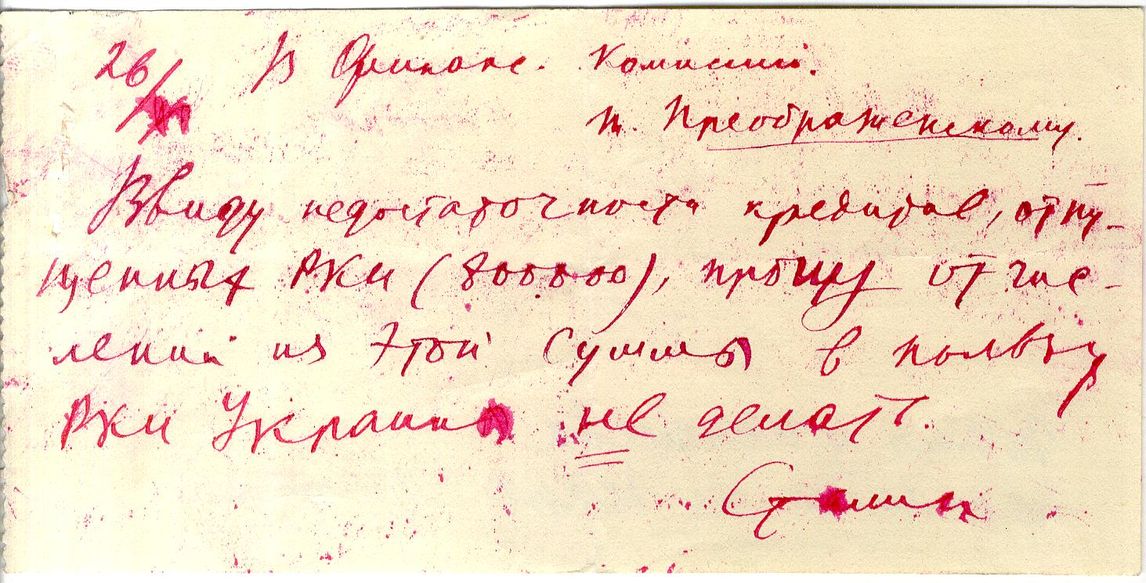 26/ В Финанс. Комиссию.
т. Преображенскому.
Ввиду недостаточности кредитов, отпу-
щенных РКИ (800000), прошу отчис-
лений из этой суммы в пользу
РКИ Украины не делать.
Сталин